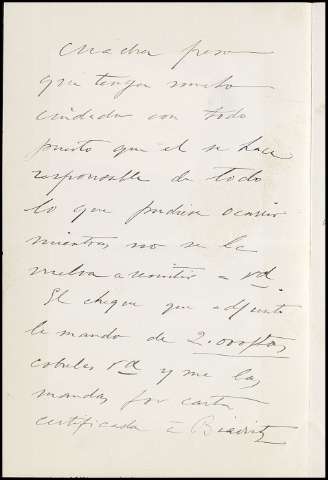 Machu pero
que tengan mucho
cuidado con todo
puesto que el se hace
responsable de todo
lo que pudiese ocasio
mientras no se la
vuelva a remitir a Vd.
El cheque que adjunto
le mando de 2.000 ptas
cobrelas Vd y me las
mandas por carta
certificada á Biarritz